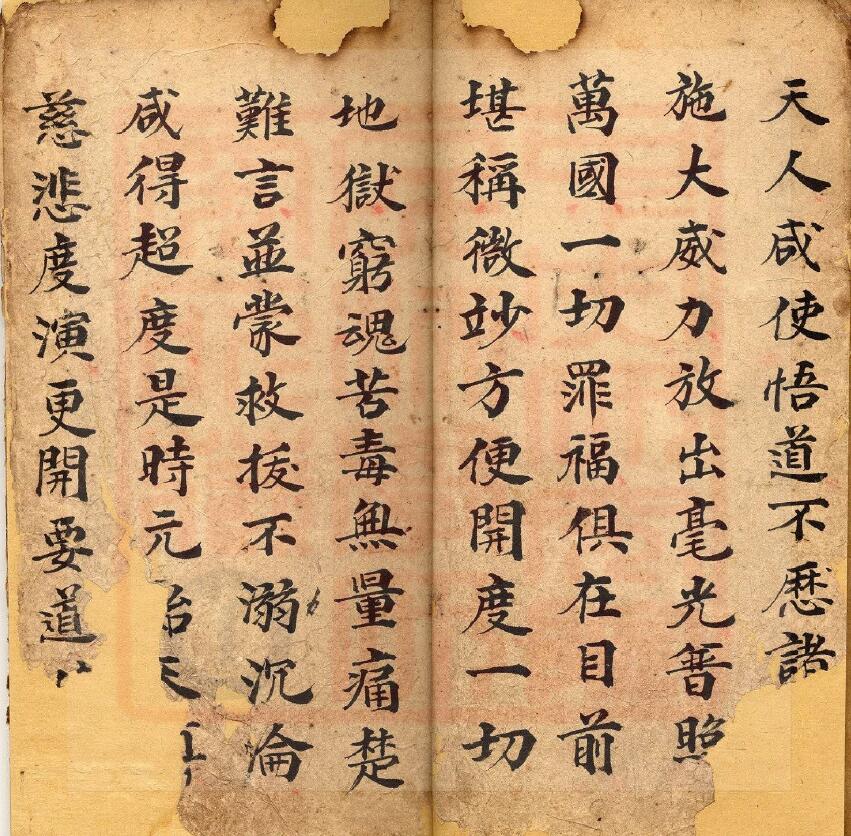 天人咸使悟道不厯諸
施大威力放出毫光普照
萬國一切罪福俱在目前
堪稱微妙方便開度一切
地獄窮魂苦毒無量痛楚
難言並蒙救援不溺沉淪
咸得超度是時元始天
慈悲度演更開要道